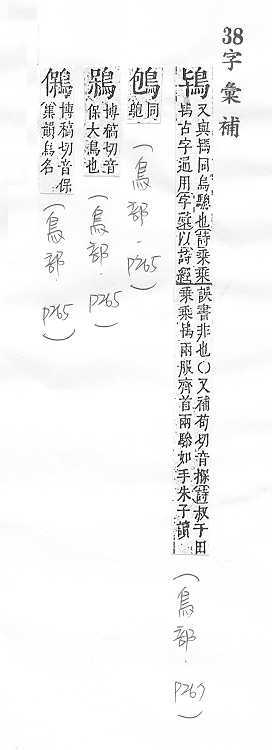 38字彙補
鴇
又與駂同烏驄也詩乘乘誤書非也○又補苟切音掊詩叔于田
鴇古字通用字彙以詩經乘乘鴇兩服齊首兩驂如手朱子讀
(鳥部.P267)
䳈
同
(鳥部.P265)
博稿切音
保大鳥也
(鳥部.P265)
博稿切音保
集韻鳥名
(鳥部.P265)